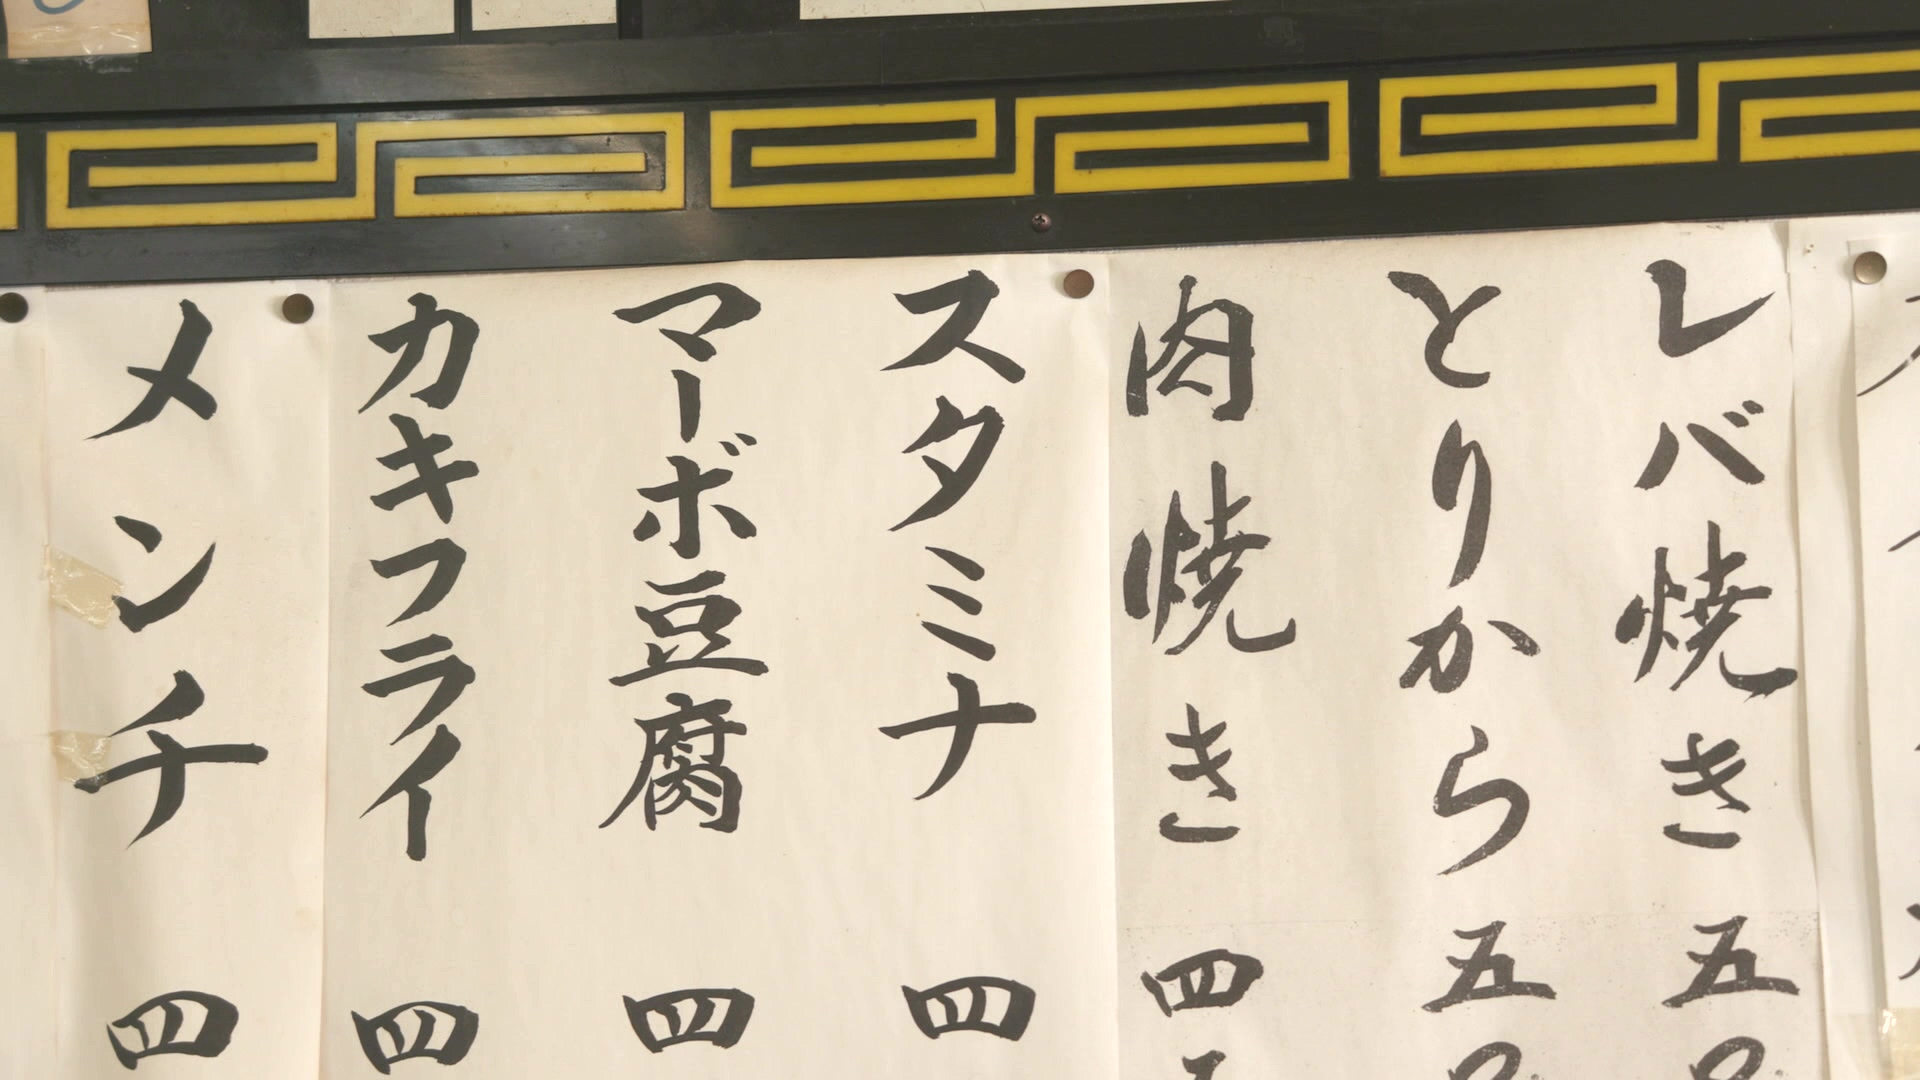 レバ焼き 五〇
とりから 五〇
肉焼き 四
スタミナ 四
マーボ豆腐 四
カキフライ 四
メンチ 四